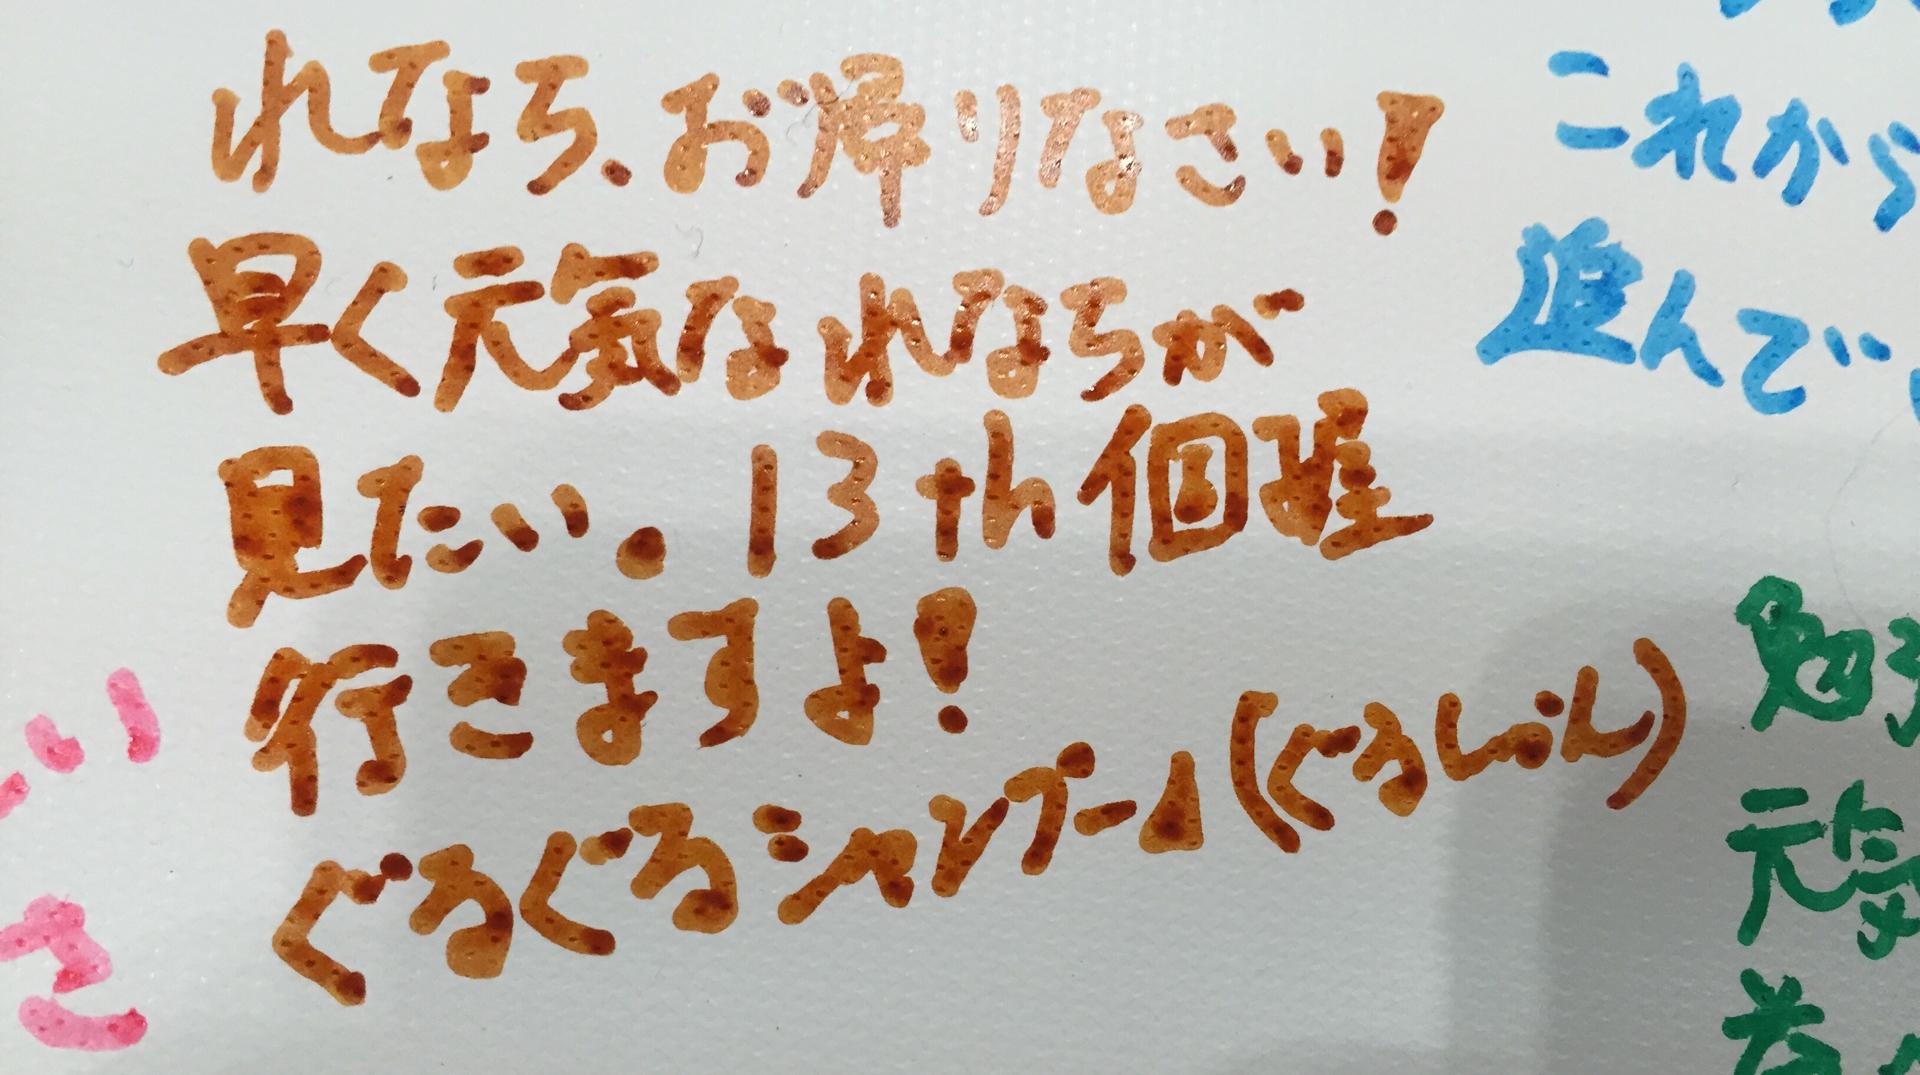 れなち、お帰りなさい!
早く元気なれなちが
見たい。13th個握
行きますよ!
ぐるぐるシャンプー⊿(ぐるしゃん)
これから
進んでい
元気